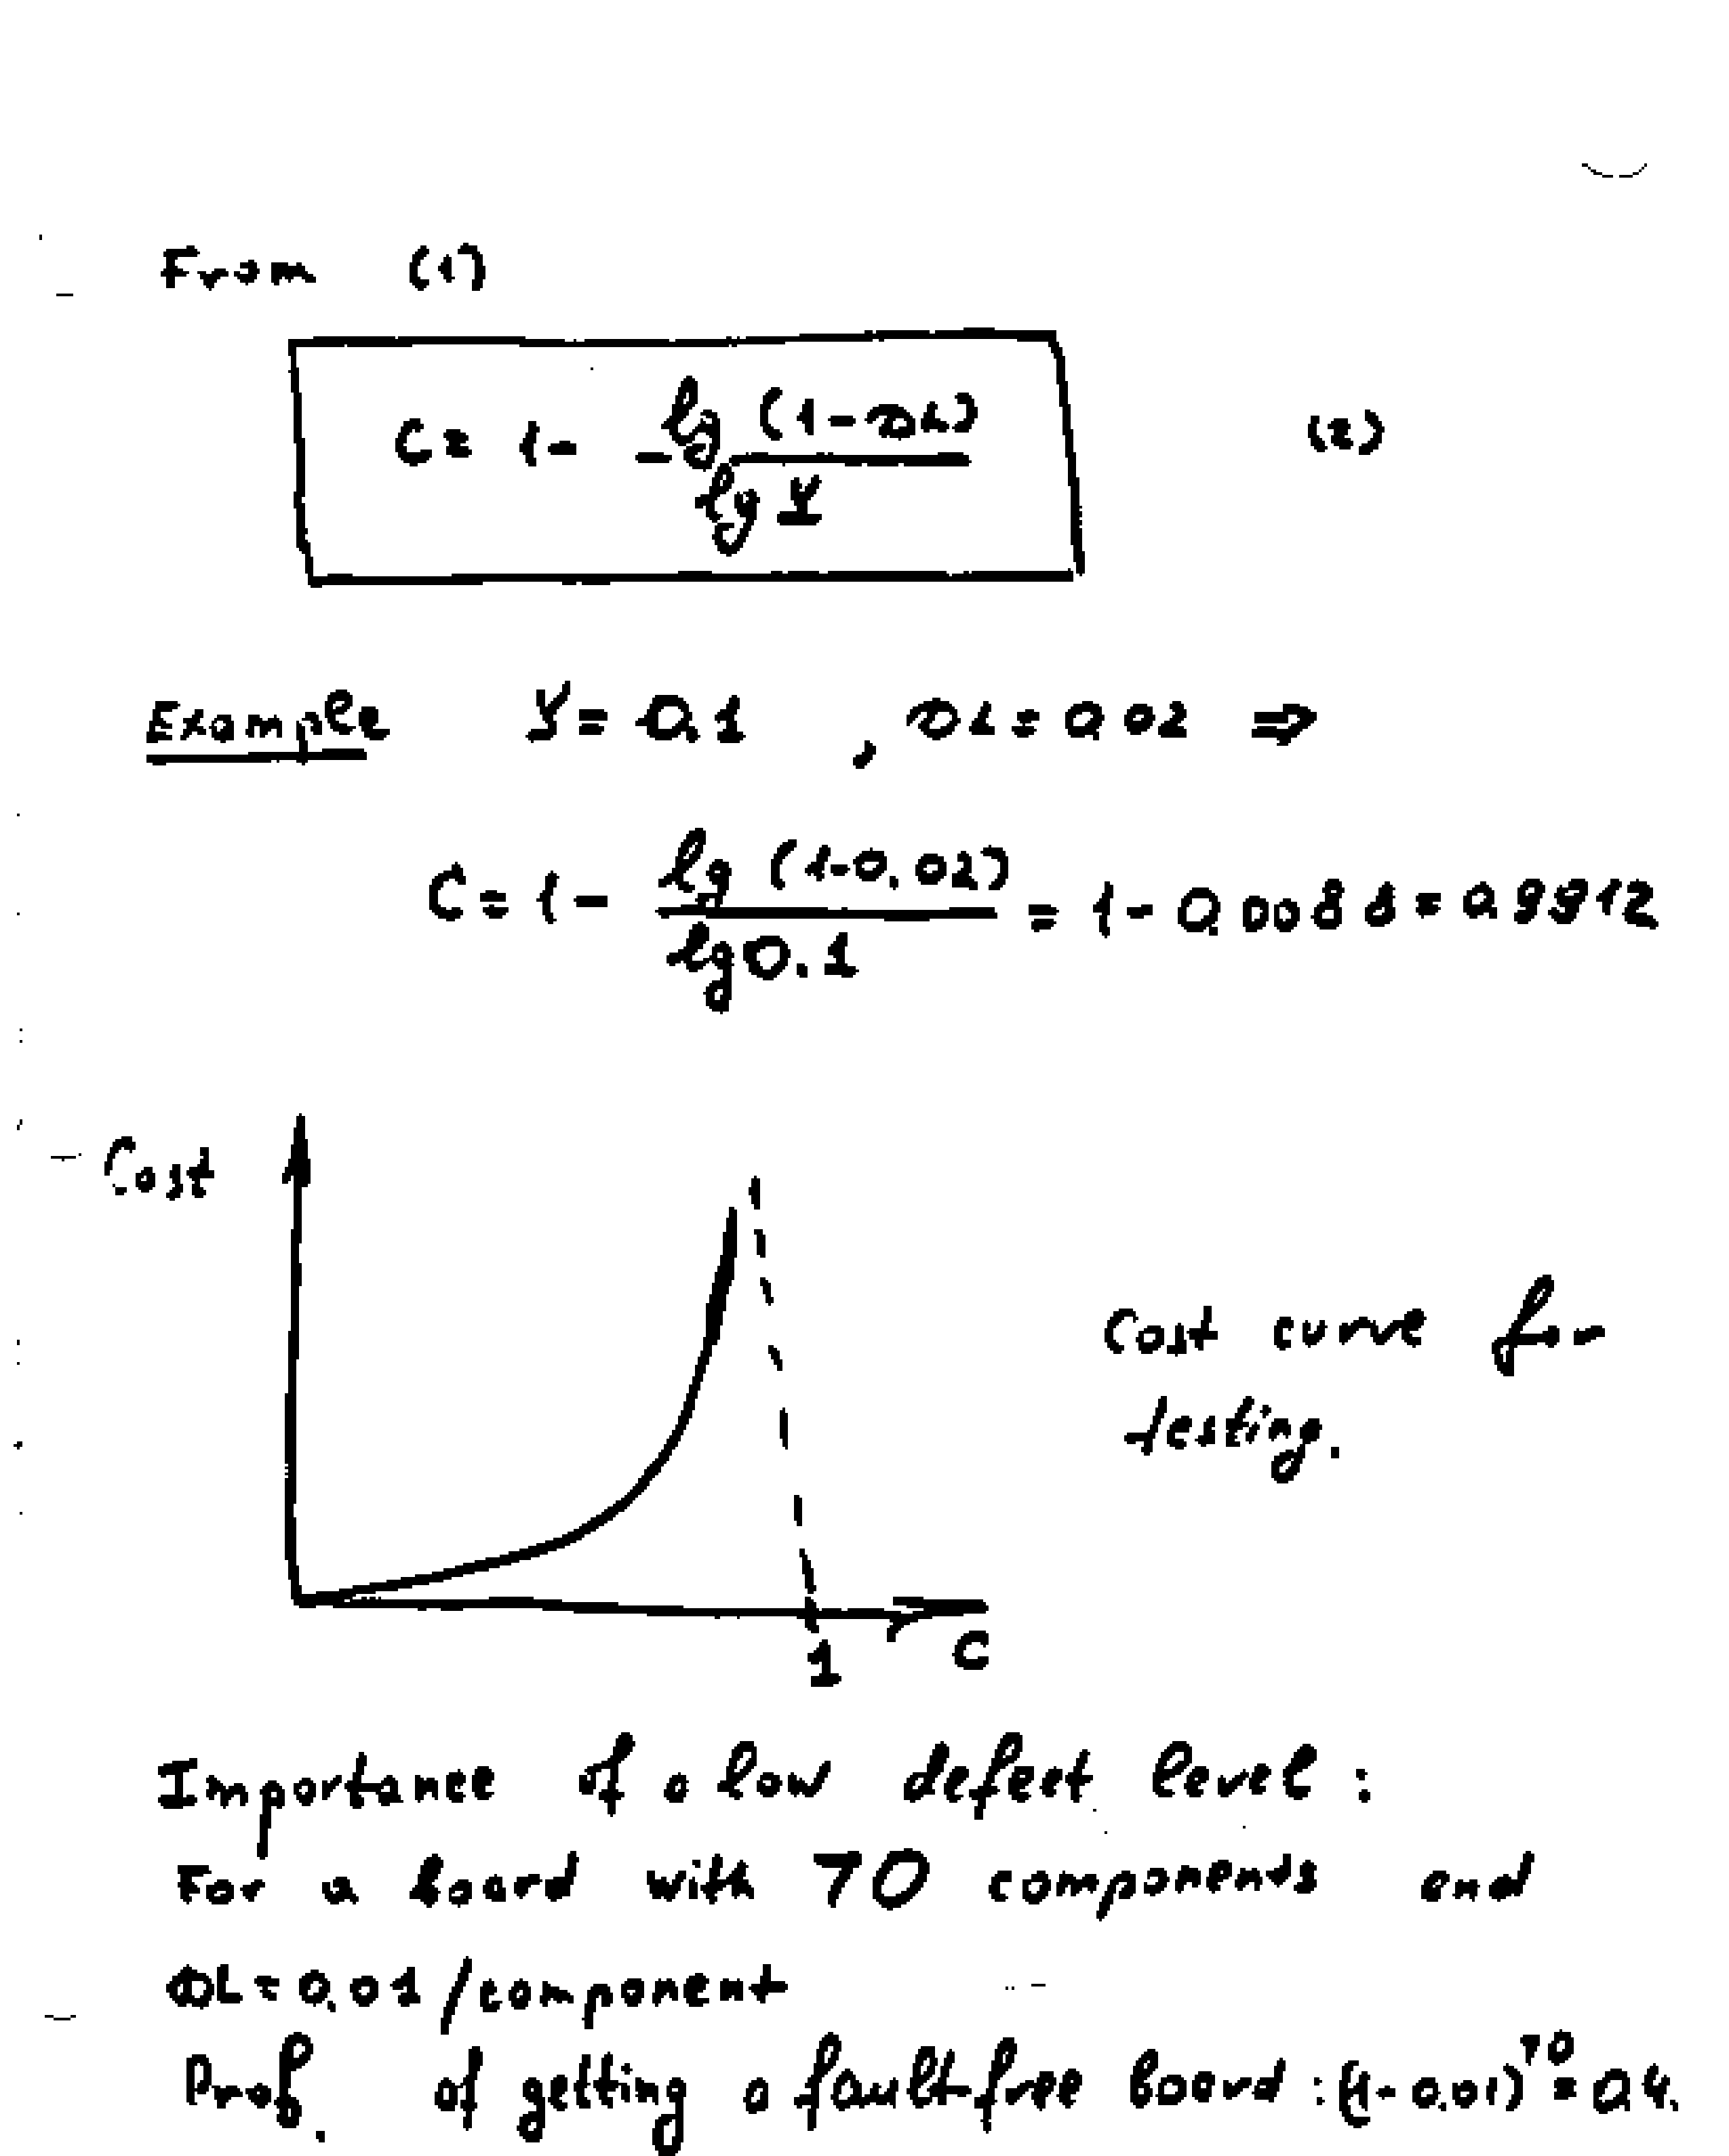 From (1)
C = 1 - lg (1-DL) / lg Y (2)
Example Y = 0.1 , DL = 0.02 ⇒
C = 1 - lg (1-0.02) / lg 0.1 = 1 - 0.0088 = 0.9912
Cost
Cost curve for
testing.
1 C
Importance of a low defect level :
For a board with 70 components and
DL = 0.01 / component
Prob. of getting a fault-free board : (1-0.01)^70 = 0.4.